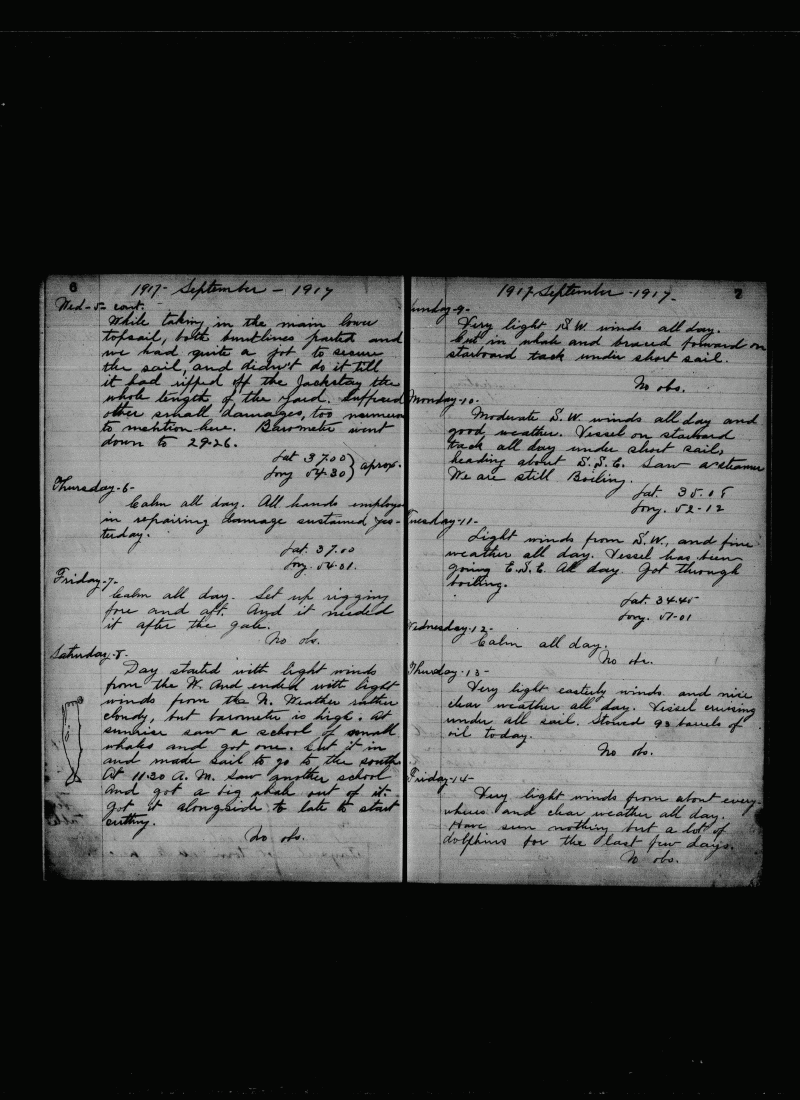 6
1917- September - 1917
Wed-5- cont.
While taking in the main lower
topsail, both buntlines parted and
we had quite a job to secure
the sail, and didn't do it till
it had ripped off the Jackstay the
whole length of the yard. Suffered
other small damages, too numerou
to mention here. Barometer went
down to 29.26.
Lat 37.00
Long 54-30 } aprox.
Thursday-6-
Calm all day. All hands employe
in repairing damage sustained yes-
terday.
Lat. 37.00
Long. 54-01.
Friday-7-
Calm all day. Set up rigging
fore and aft. And it needed
it after the gale.
No obs.
Saturday-8-
Day started with light winds
from the W. And ended with light
winds from the N. Weather rather
cloudy, but barometer is high. At
sunrise saw a school of small
whales and got one. Cut it in
and made sail to go to the south
At 11:30 A.M. Saw another school
And got a big whale out of it.
Got it alongside to late to start
cutting.
No obs.
7
1917 September -1917-
unday-9-
Very light S.W. winds all day.
Cut in whale and braced forward on
starboard tack under short sail.
No obs.
Monday-10-
Moderate S.W. winds all day and
good weather. Vessel on starboard
tack all day under short sail,
heading about S.S.E. Saw a steamer
We are still Boiling.
Lat. 35.05
Long. 52-12
Tuesday-11-
Light winds from S.W., and fine
weather all day. Vessel has been
going E.S.E. All day. Got through
boiling.
Lat. 34.45
Long. 51-01
Wednesday-12-
Calm all day.
No obs.
Thursday-13-
Very light easterly winds and nice
clear weather all day. Vessel cruising
under all sail. Stowed 93 barrels of
oil today.
No obs.
Friday-14-
Very light winds from about every-
where and clear weather all day.
Have seen nothing but a lot of
dolphins for the last few days.
No obs.